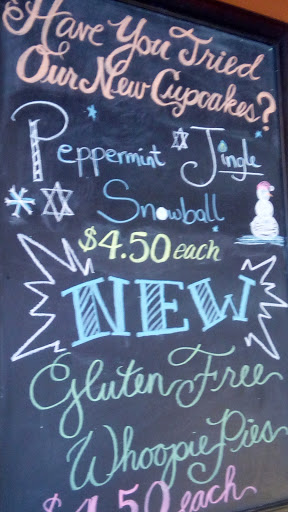 Have You Tried
Our New Cupcakes?
Peppermint Jingle
Snowball
$4.50 each
NEW
Gluten Free
Whoopie Pies
$4.50 each